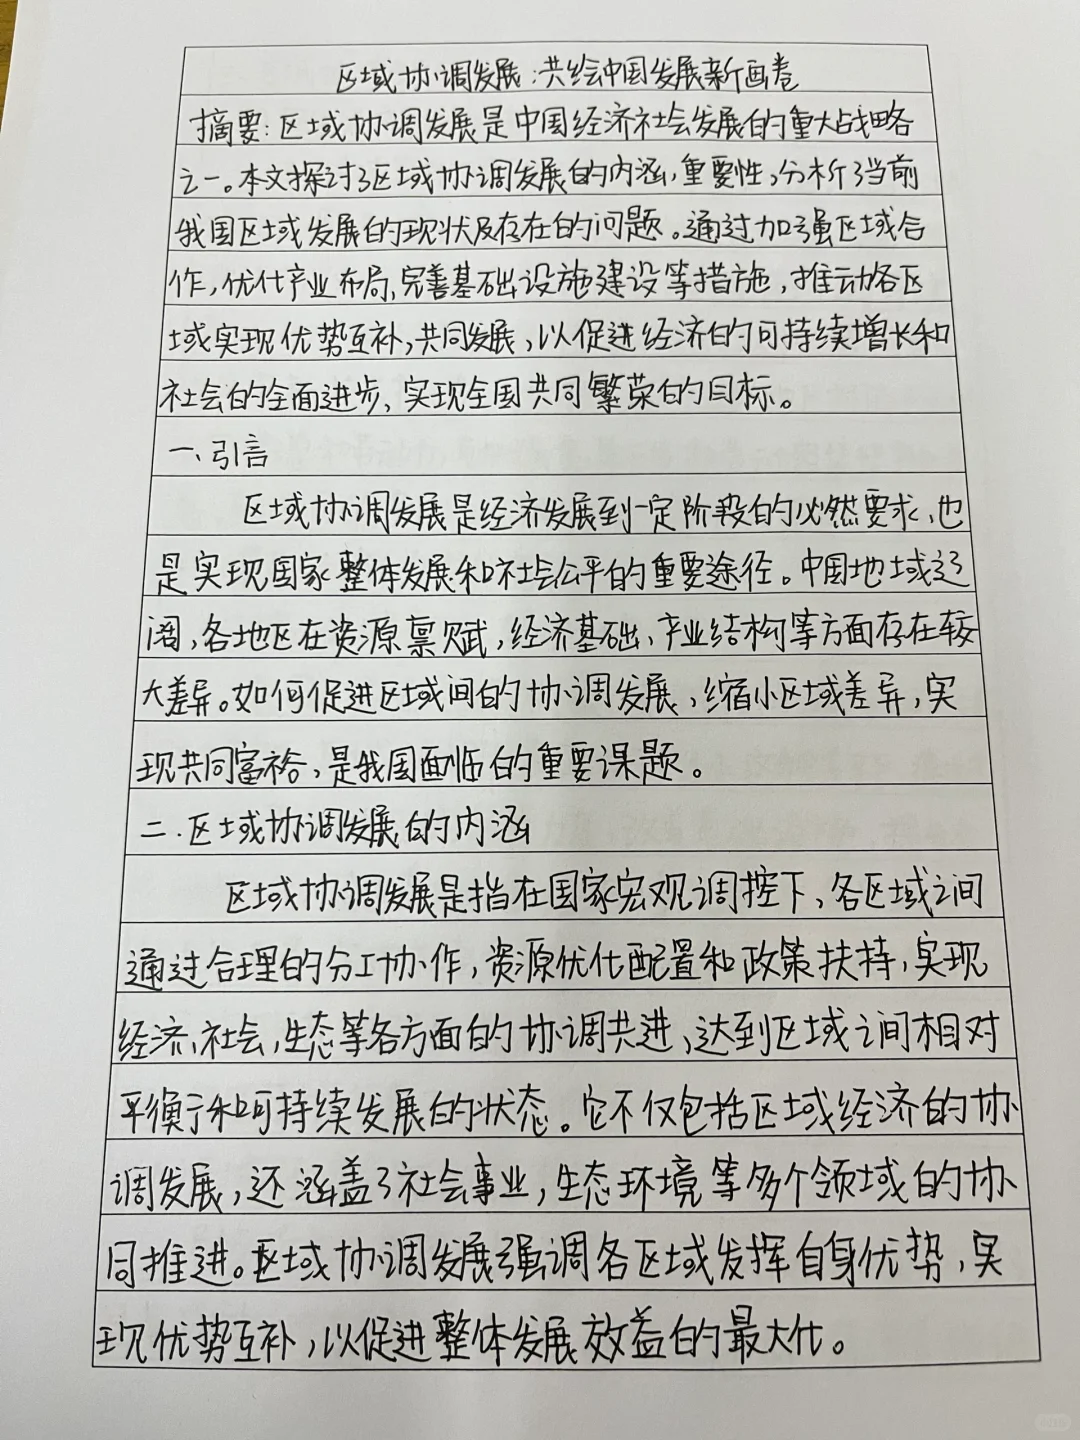 区域协调发展:共绘中国发展新画卷
摘要:区域协调发展是中国经济社会发展的重大战略
之一。本文探讨了区域协调发展的内涵,重要性,分析了当前
我国区域发展的现状及存在的问题。通过加强区域合
作,优化产业布局、完善基础设施建设等措施,推动各区
域实现优势互补,共同发展,以促进经济的可持续增长和
社会的全面进步,实现全国共同繁荣的目标。
一、引言
区域协调发展是经济发展到一定阶段的必然要求,也
是实现国家整体发展和社会公平的重要途径。中国地域辽
阔,各地区在资源禀赋,经济基础,产业结构等方面存在较
大差异。如何促进区域间的协调发展,缩小区域差异,实
现共同富裕,是我国面临的重要课题。
二.区域协调发展的内涵
区域协调发展是指在国家宏观调控下,各区域之间
通过合理的分工协作,资源优化配置和政策扶持,实现
经济,社会,生态等各方面的协调共进,达到区域之间相对
平衡和可持续发展的状态。它不仅包括区域经济的协
调发展,还涵盖了社会事业,生态环境等多个领域的协
同推进。区域协调发展强调各区域发挥自身优势,实
现优势互补,以促进整体发展效益的最大化。